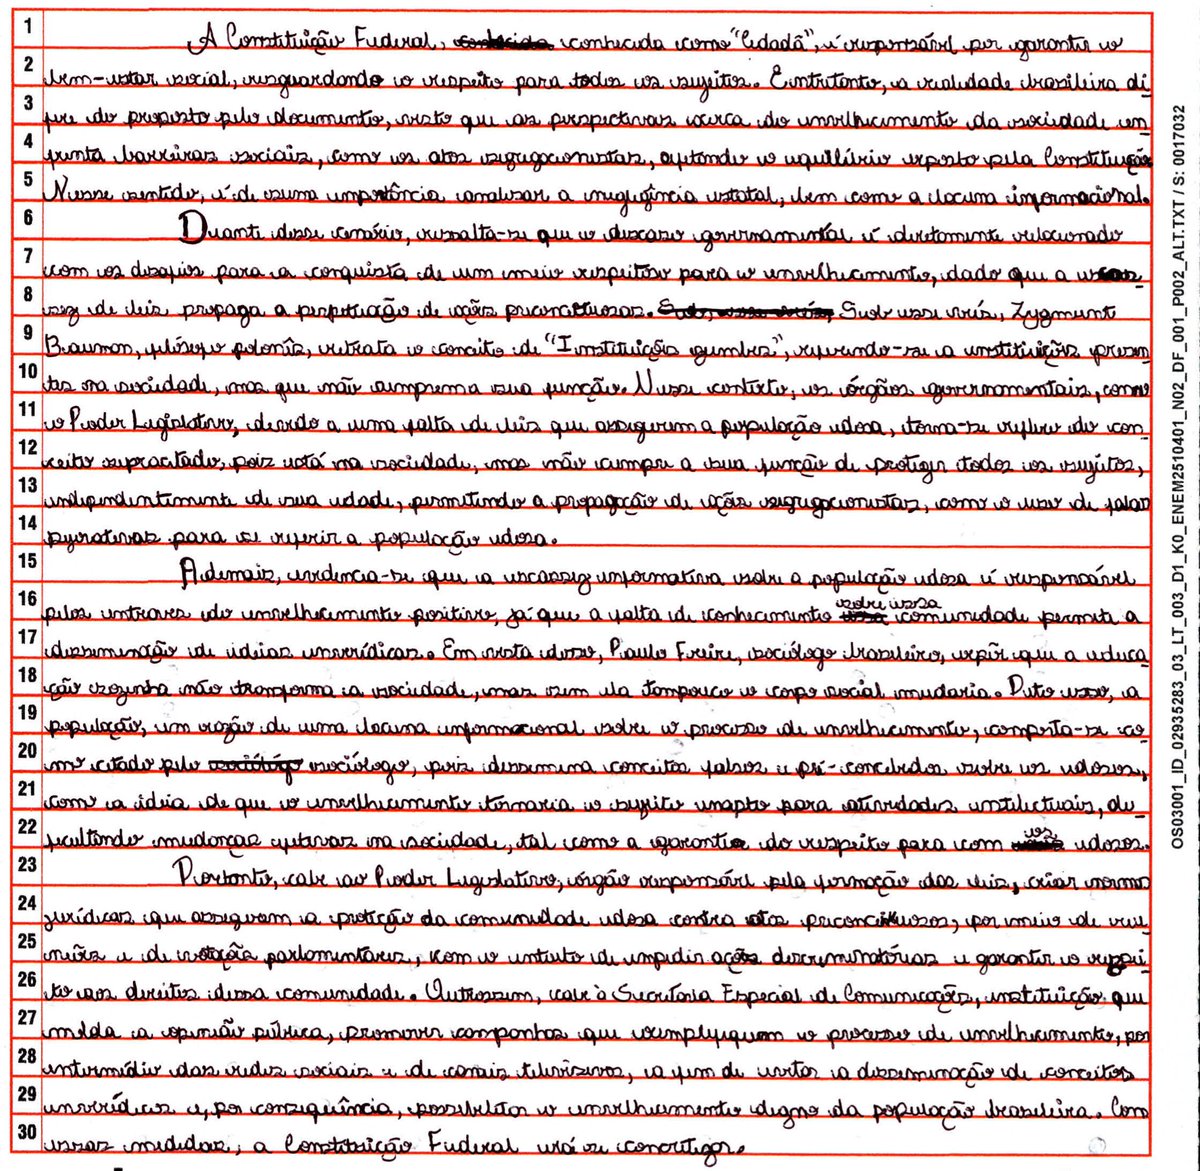 1 A Constituição Federal, conhecida como "Cidadã", é responsável por garantir o
2 bem-estar social, resguardando o respeito para todos os sujeitos. Entretanto, a realidade brasileira di
3 fere do proposto pelo documento, visto que as perspectivas acerca do envelhecimento da sociedade en
4 frenta barreiras sociais, como os atos segregacionistas, afetando o equilíbrio exposto pela Constituição
5 Nesse sentido, é de suma importância analisar a negligência estatal, bem como a lacuna informacional.
6 Duante desse cenário, ressalta-se que o descaso governamental é diretamente relacionado
7 com os desafios para a conquista de um meio respeitoso para o envelhecimento, dado que a escas
8 sez de leis propaga a perpetuação de ações preconceituosas. Sob esse viés, Zygmunt
9 Brauman, filósofo polonês, retrata o conceito de "Instituições zumbis", referindo-se a instituições presen
10 tes na sociedade, mas que não cumprem a sua função. Nesse contexto, os órgãos governamentais, como
11 o Poder Legislativo, devido a uma falta de leis que assegurem a população idosa, torna-se reflexo do con
12 ceito supracitado, pois está na sociedade, mas não cumpre a sua função de proteger todos os sujeitos,
13 independentemente de sua idade, permitindo a propagação de ações segregacionistas, como o uso de falas
14 pejorativas para se referir a população idosa.
15 Ademais, evidencia-se que a escassez informativa sobre a população idosa é responsável
16 pelos entraves do envelhecimento positivo, já que a falta de conhecimento sobre essa comunidade permite a
17 disseminação de ideias inverídicas. Em vista disso, Paulo Freire, sociólogo brasileiro, expõe que a educa
18 ção sozinha não transforma a sociedade, mas sem ela tampouco o corpo social mudaria. Dito isso, a
19 população, em razão de uma lacuna informacional sobre o processo de envelhecimento, comporta-se co
20 mo citado pelo sociólogo, pois dissemina conceitos falsos e pré-concebidos sobre os idosos,
21 como a ideia de que o envelhecimento tornaria o sujeito inapto para atividades intelectuais, di
22 ficultando mudanças efetivas na sociedade, tal como a garantia do respeito para com os idosos.
23 Portanto, cabe ao Poder Legislativo, órgão responsável pela formação das leis, criar normas
24 jurídicas que assegurem a proteção da comunidade idosa contra atos preconceituosos, por meio de reu
25 niões e de votações parlamentares, com o intuito de impedir ações discriminatórias e garantir o respei
26 to aos direitos dessa comunidade. Outrossim, cabe à Secretaria Especial de Comunicações, instituição que
27 molda a opinião pública, promover campanhas que exemplifiquem o processo de envelhecimento, por
28 intermédio das redes sociais e de canais televisivos, a fim de evitar a disseminação de conceitos
29 inverídicos e, por consequência, possibilitar o envelhecimento digno da população brasileira. Com
30 essas medidas, a Constituição Federal irá se concretizar.
OS03001_ID_02935283_03_LT_003_D1_K0_ENEM2510401_N02_DF_001_P002_ALT.TXT / S: 0017032